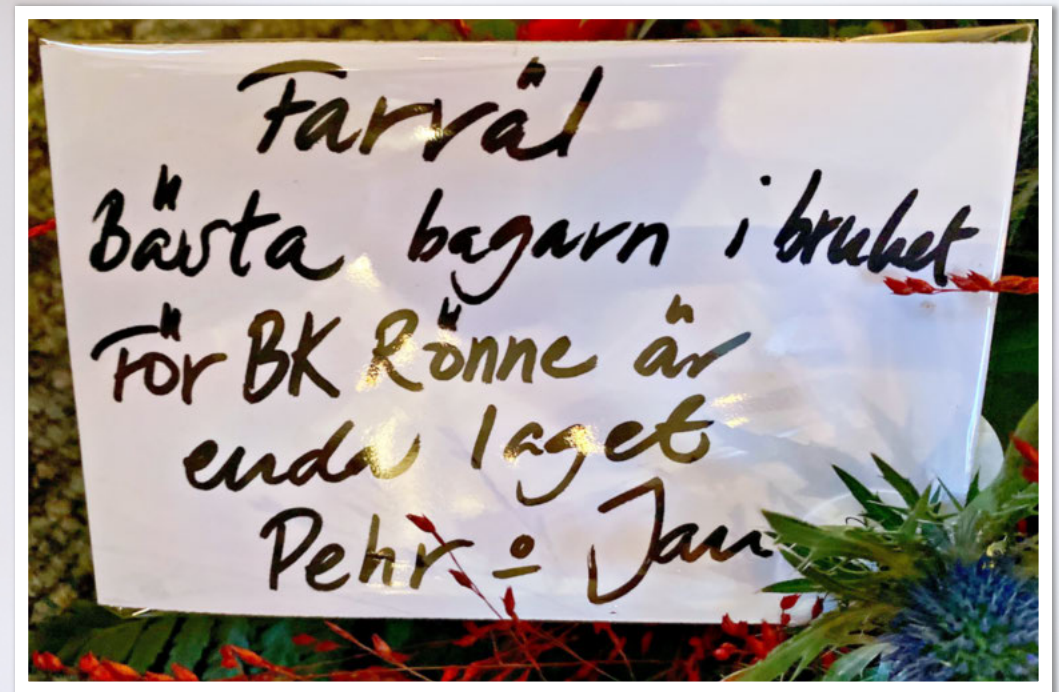 Farväl
Bästa bagarn i bruket
För BK Rönne är
enda laget
Pehr o Jan